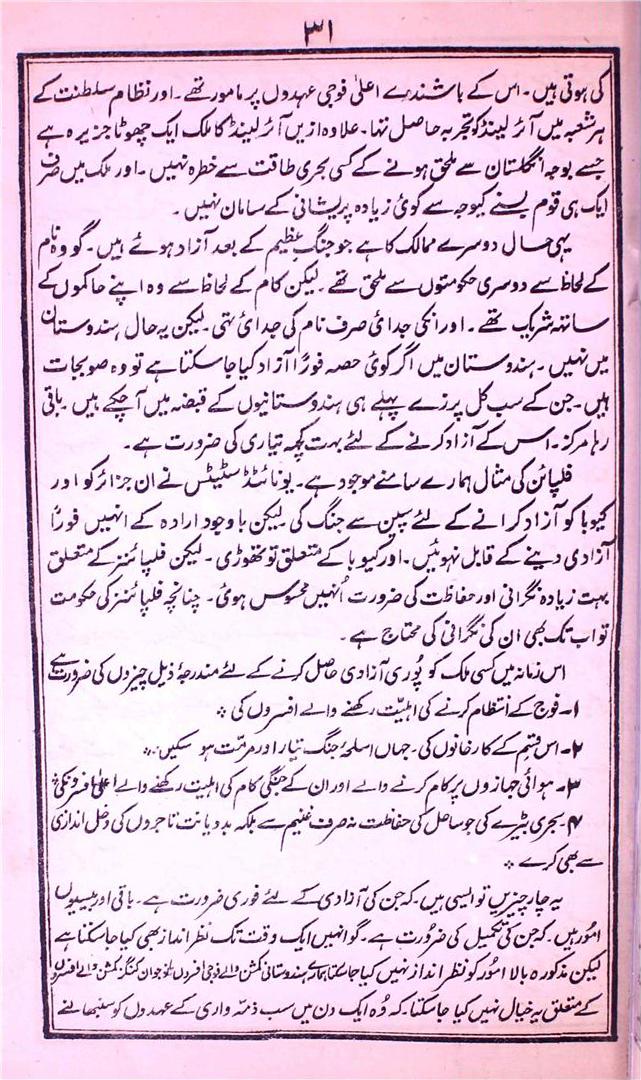 ۳۱
کی ہوتی ہیں۔ اس کے باشندے اعلیٰ فوجی عہدوں پر مامور تھے۔ اور نظام سلطنت کے
ہر شعبہ میں آئرلینڈ کو تجربہ حاصل تھا۔ علاوہ ازیں آئرلینڈ کا ملک ایک چھوٹا جزیرہ ہے
جسے بوجہ انگلستان سے ملحق ہونے کے کسی بحری طاقت سے خطرہ نہیں۔ اور ملک میں صرف
ایک ہی قوم بسنے کیوجہ سے کوئی زیادہ پریشانی کے سامان نہیں۔
یہی حال دوسرے ممالک کا ہے جو جنگ عظیم کے بعد آزاد ہوئے ہیں۔ گو وہ نام
کے لحاظ سے دوسری حکومتوں سے ملحق تھے۔ لیکن کام کے لحاظ سے وہ اپنے حاکموں کے
ساتھ شریک تھے۔ اور انکی جدائی صرف نام کی جدائی تھی۔ لیکن یہ حال ہندوستان
میں نہیں۔ ہندوستان میں اگر کوئی حصہ فوراً آزاد کیا جا سکتا ہے تو وہ صوبجات
ہیں۔ جن کے سب کل پرزے پہلے ہی ہندوستانیوں کے قبضہ میں آ چکے ہیں۔ باقی
رہا مرکز۔ اس کے آزاد کرنے کے لئے بہت کچھ تیاری کی ضرورت ہے۔
فلپائن کی مثال ہمارے سامنے موجود ہے۔ یونائٹڈ سٹیٹس نے ان جزائر کو اور
کیوبا کو آزاد کرانے کے لئے سپین سے جنگ کی لیکن باوجود ارادہ کے انہیں فوراً
آزادی دینے کے قابل نہوئیں۔ اور کیوبا کے متعلق تو تھوڑی۔ لیکن فلپائنز کے متعلق
بہت زیادہ نگرانی اور حفاظت کی ضرورت اُنہیں محسوس ہوئی۔ چنانچہ فلپائنز کی حکومت
تو اب تک بھی ان کی نگرانی کی محتاج ہے۔
اس زمانہ میں کسی ملک کو پُوری آزادی حاصل کرنے کے لئے مندرجۂ ذیل چیزوں کی ضرورت ہے
۱۔ فوج کے انتظام کرنے کی اہلیّت رکھنے والے افسروں کی ٭
۲۔ اس قسم کے کارخانوں کی۔ جہاں اسلحۂ جنگ تیار اور مرمّت ہو سکیں ٭
۳۔ ہوائی جہازوں پر کام کرنے والے اور ان کے جنگی کام کی اہلیت رکھنے والے اعلیٰ افسرونکی ٭
۴۔ بحری بیڑے کی جو ساحل کی حفاظت نہ صرف غنیم سے بلکہ بددیانت تاجروں کی دخل اندازی
سے بھی کرے ٭
یہ چار چیزیں تو ایسی ہیں۔ کہ جن کی آزادی کے لئے فوری ضرورت ہے۔ باقی اور بیسیوں
امُور ہیں۔ کہ جن کی تکمیل کی ضرورت ہے۔ گو انہیں ایک وقت تک نظر انداز بھی کیا جا سکتا ہے
لیکن مذکورہ بالا امُور کو نظر انداز نہیں کیا جا سکتا ہمارے ہندوستانی کمشن والے فوجی افسروں یا نوجوان کنگز کمشن والے افسروں
کے متعلق یہ خیال نہیں کیا جا سکتا۔ کہ وُہ ایک دن میں سب ذمّہ واری کے عہدوں کو سنبھالنے